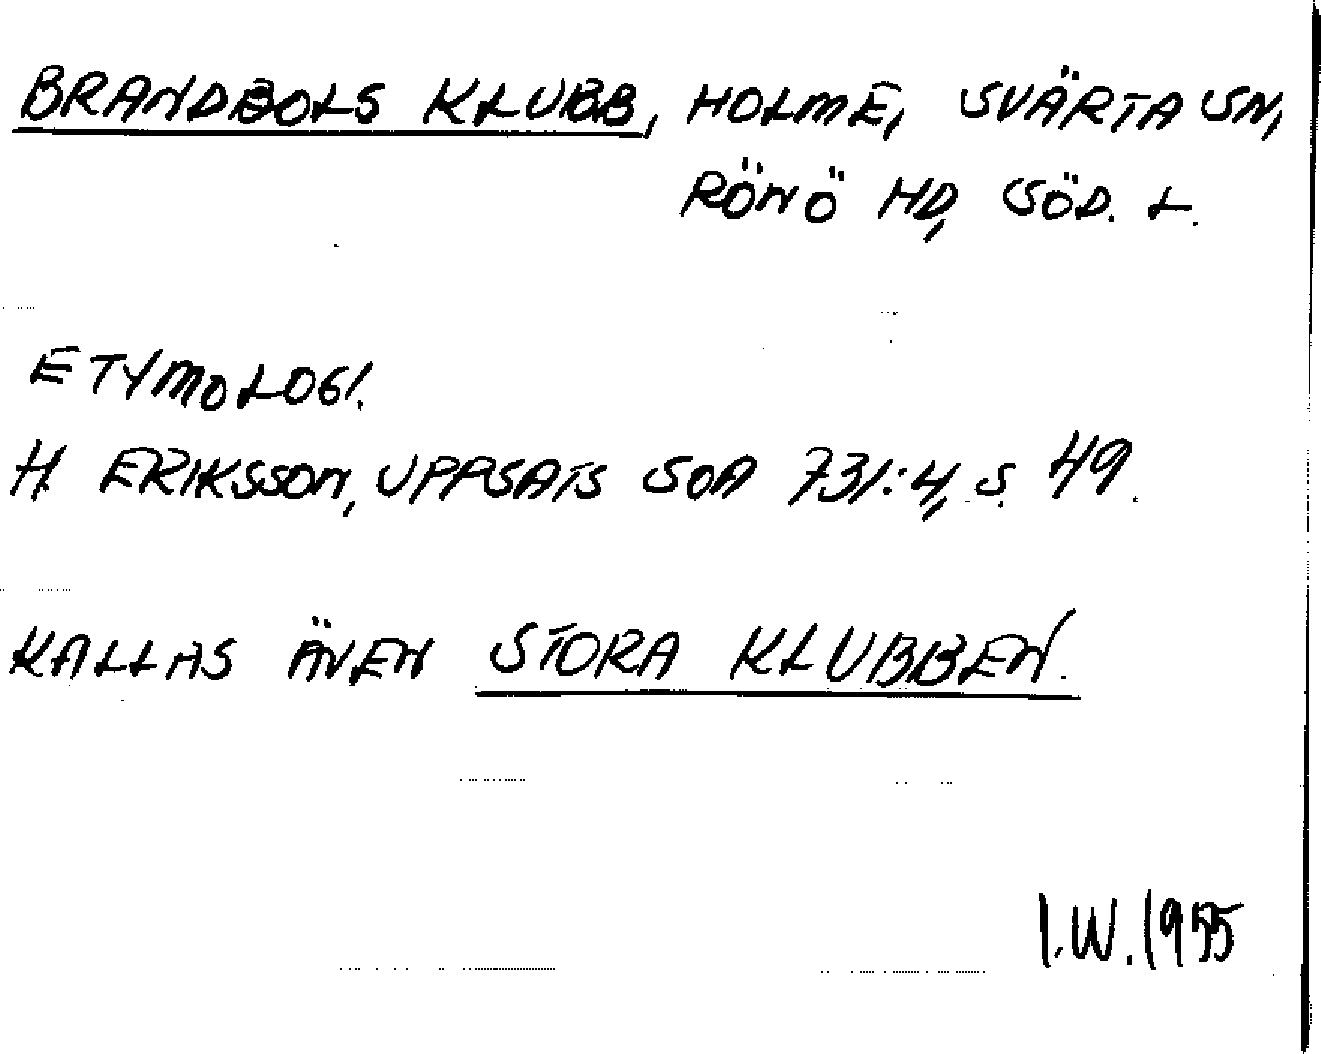 BRANDBOLS KLUBB, HOLME, SVÄRTA SN,
RÖNÖ HD, SÖD. L.
ETYMOLOGI.
H. ERIKSSON, UPPSATS SOA 731:4, S. 49.
KALLAS ÄVEN STORA KLUBBEN.
I.W. 1955